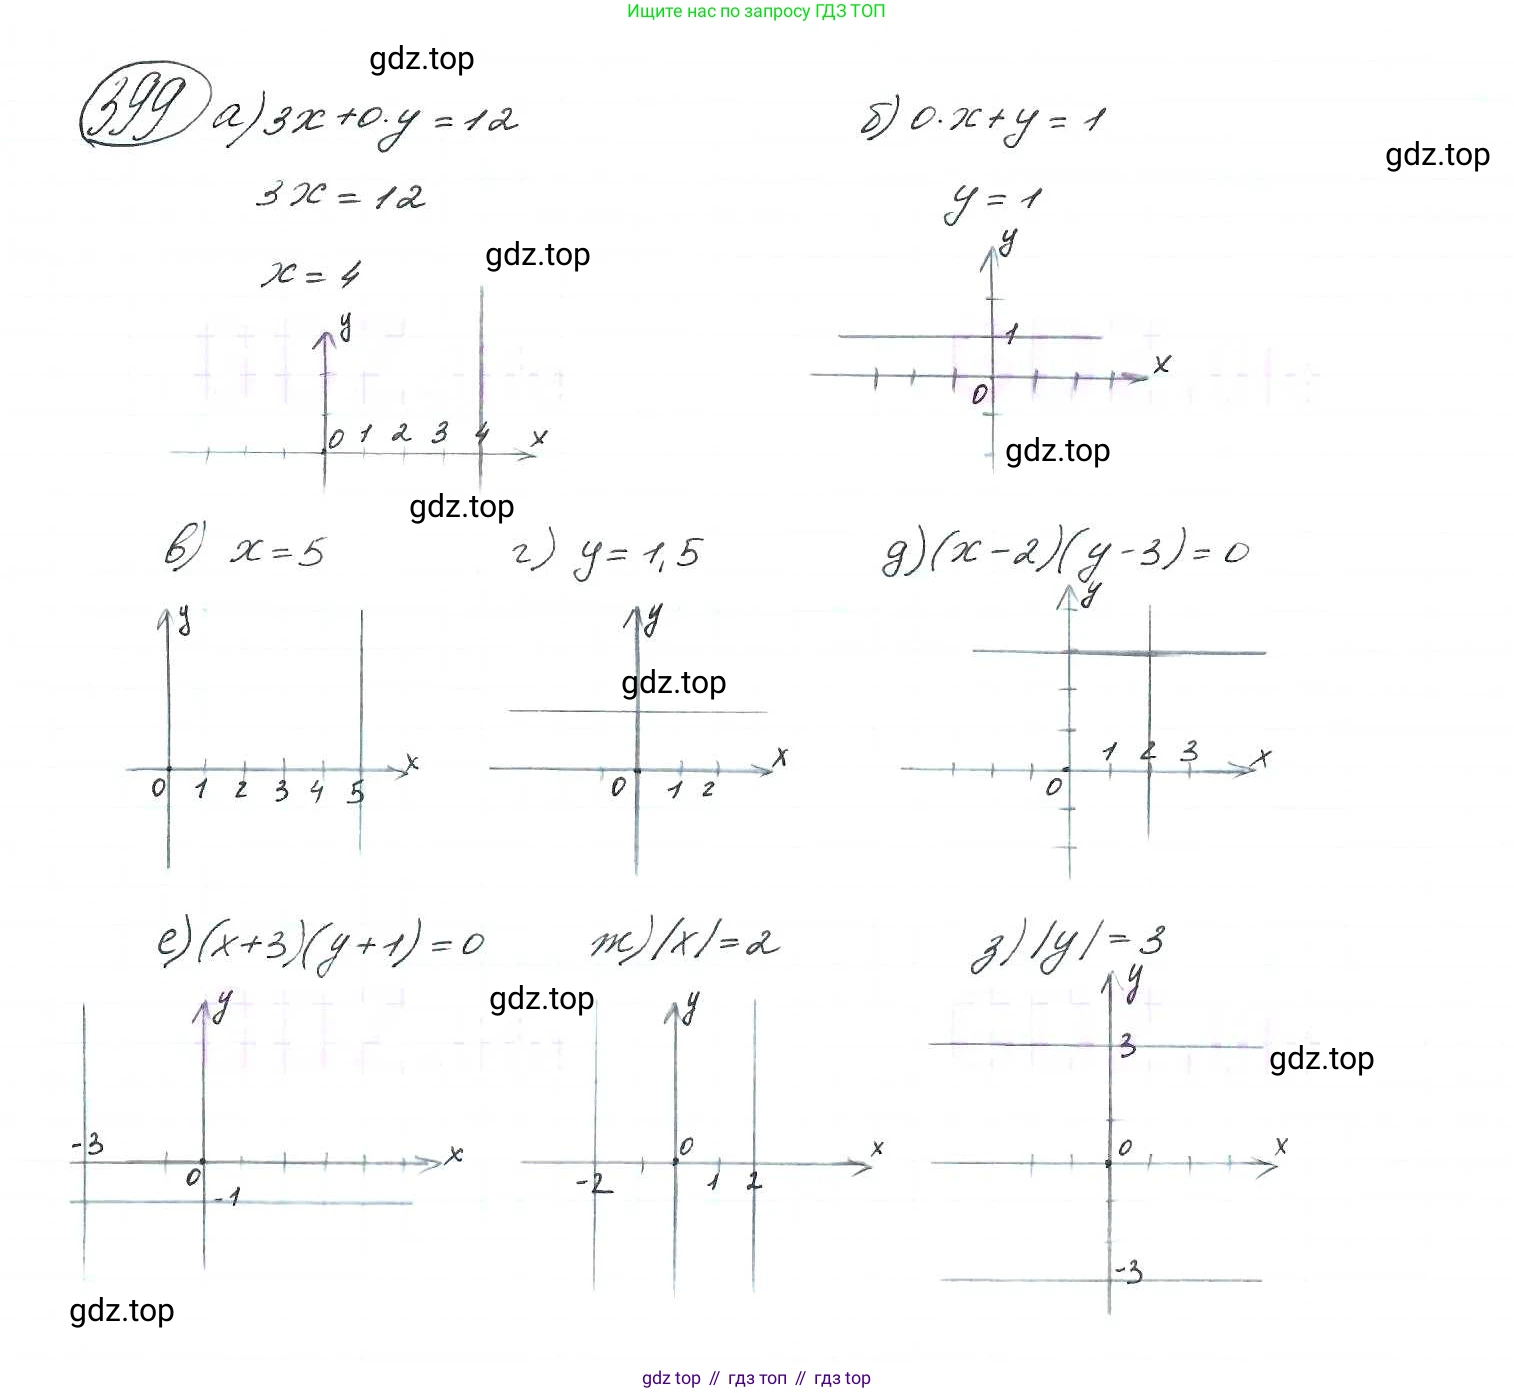 Ищите нас по запросу ГДЗ ТОП
gdz.top
399 а) 3x+0·y=12
б) 0·x+y=1
gdz.top
3x=12
y=1
gdz.top
x=4
y
y
1
x
0
0 1 2 3 4 x
gdz.top
gdz.top
в) x=5
г) y=1,5
д) (x-2)(y-3)=0
y
y
y
gdz.top
1 2 3
x
x
x
0 1 2 3 4 5
0 1 2
0
е) (x+3)(y+1)=0
ж) |x|=2
з) |y|=3
y
y
y
gdz.top
3
gdz.top
-3
x
0
x
0
x
0
-2
1 2
-1
-3
gdz.top
gdz top // гдз топ // gdz top